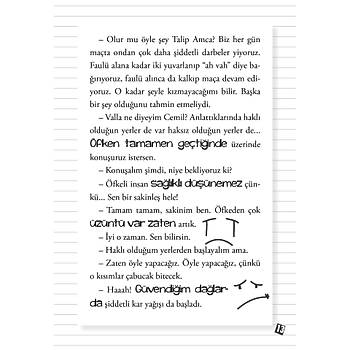 – Olur mu öyle şey Talip Amca? Biz her gün
maçta ondan çok daha şiddetli darbeler yiyoruz.
Faulü alana kadar iki yuvarlanıp “ah vah” diye ba-
ğırıyoruz, faulü alınca da kalkıp maça devam edi-
yoruz. O kadar şeyle kızmayacağımı bilir. Başka
bir şey olduğunu tahmin etmeliydi.
– Valla ne diyeyim Cemil? Anlattıklarında haklı
olduğun yerler de var haksız olduğun yerler de...
Öfken tamamen geçtiğinde üzerinde
konuşuruz istersen.
– Konuşalım şimdi, niye bekliyoruz ki?
– Öfkeli insan sağlıklı düşünemez çün-
kü... Sen bir sakinleş hele!
– Tamam tamam, sakinim ben. Öfkeden çok
üzüntü var zaten artık.
– İyi o zaman. Sen bilirsin.
– Haklı olduğum yerlerden başlayalım ama.
– Zaten öyle yapacağız. Öyle yapacağız, çünkü
o kısımlar çabucak bitecek.
– Haaah! Güvendiğim dağlar-
da şiddetli kar yağışı da başladı.